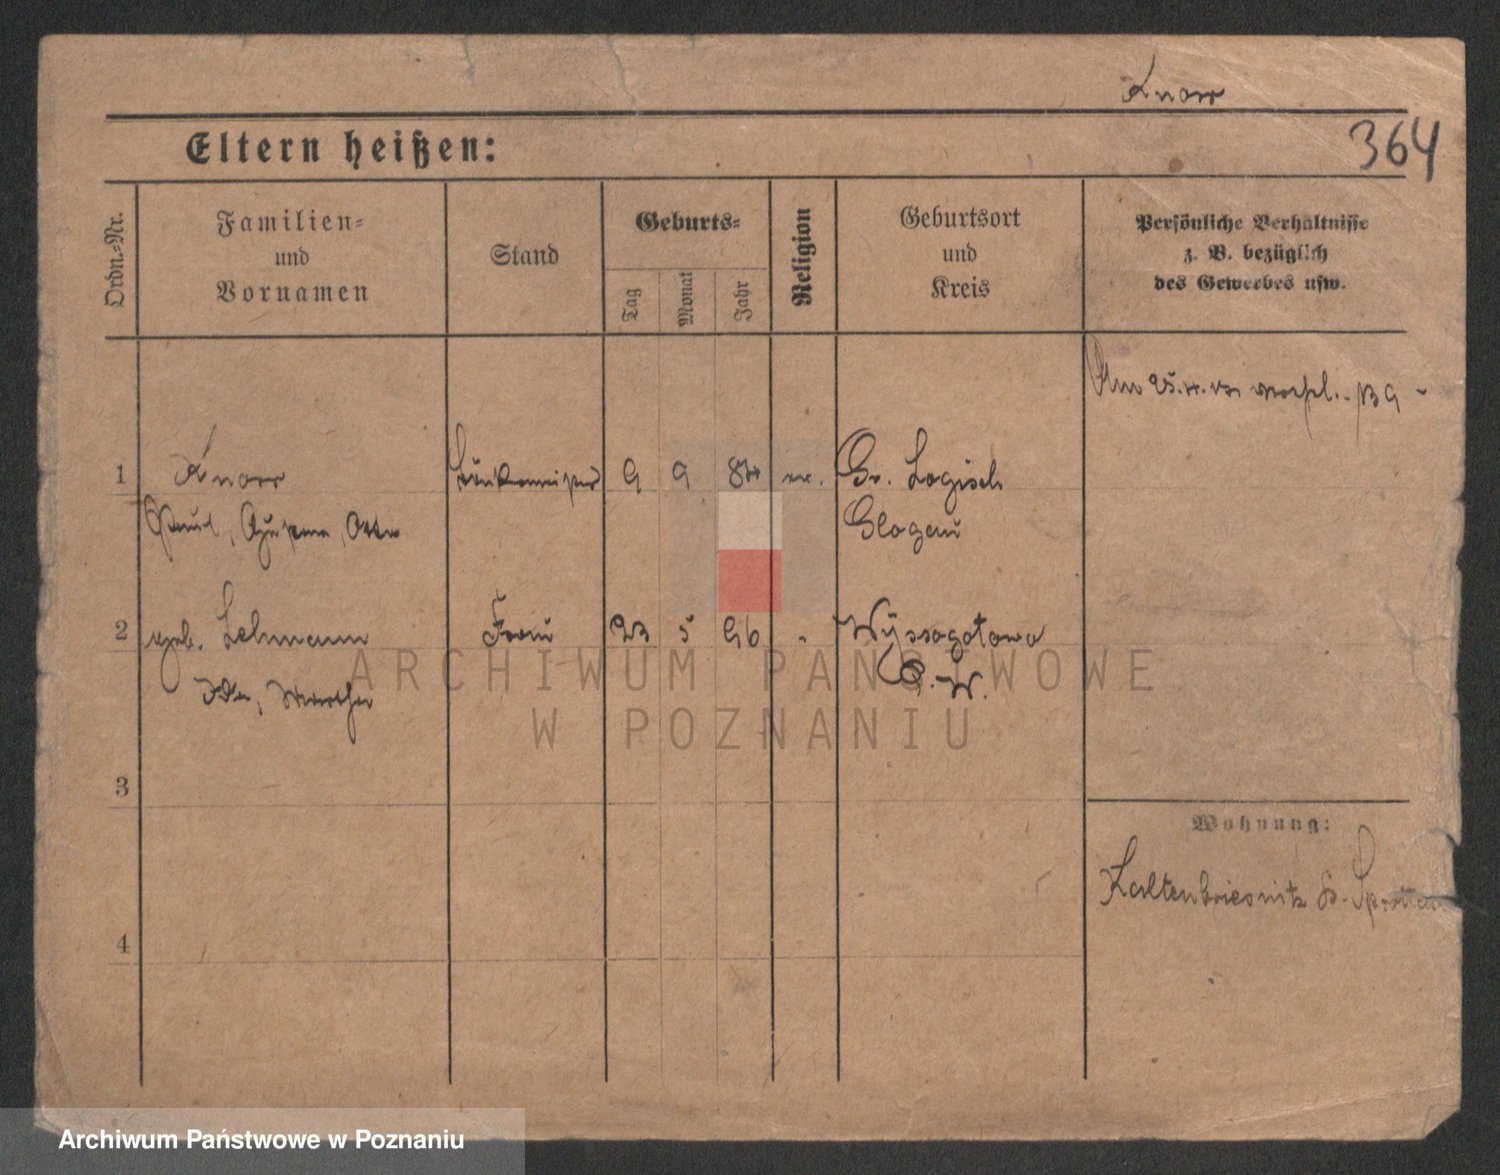 Knorr
Eltern heißen:
364
Ordn.-Nr.
Familien-
und
Vornamen
Stand
Geburts-
Tag
Monat
Jahr
Religion
Geburtsort
und
Kreis
Persönliche Verhältnisse
z. B. bezüglich
des Gewerbes usw.
Am 25.
1 Knorr 9 9 Gr. Logisch
Paul, Gustav, Otto Glogau
2 geb. Lehmann Frau 23 5 96 " Wyssogotowo
Ida, Martha P. W.
3
4
Wohnung:
Kaltenbriesnitz Kr. Sprottau
ARCHIWUM PAŃSTWOWE
W POZNANIU
Archiwum Państwowe w Poznaniu